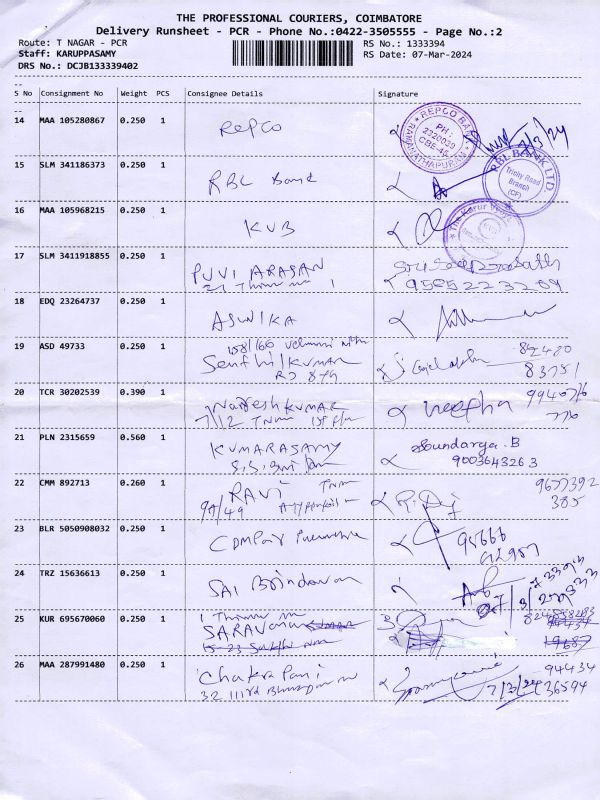 THE PROFESSIONAL COURIERS, COIMBATORE
Delivery Runsheet - PCR - Phone No.:0422-3505555 - Page No.:2
Route: T NAGAR - PCR
Staff: KARUPPASAMY
DRS No.: DCJB133339402
RS No.: 1333394
RS Date: 07-Mar-2024
S No Consignment No Weight PCS Consignee Details Signature
14 MAA 105280867 0.250 1 REPCO
REPCO BANK
PH: 2320039
CBE-45
RAMANATHAPURAM
15 SLM 341186373 0.250 1 RBL Bank
RBL BANK LTD.
Trichy Road
Branch
(CF)
16 MAA 105968215 0.250 1 KVB
The Karur Vysya
17 SLM 3411918855 0.250 1 PUVI ARASAN
9585223209
18 EDQ 23264737 0.250 1 ASWIKA
19 ASD 49733 0.250 1 158/166
Senthilkumar
82420
83751
20 TCR 30202539 0.390 1 Nareshkumar
7/12
Neetha
21 PLN 2315659 0.560 1 KUMARASAMY
Soundarya.B
9003643263
22 CMM 892713 0.260 1 RAVI
97/49
9677392
385
23 BLR 5050908032 0.250 1
95666
24 TRZ 15636613 0.250 1 SAI Brindavan
25 KUR 695670060 0.250 1 SARAVana
26 MAA 287991480 0.250 1 Chakrapani
32 111rd
94434
36594
7/3/24